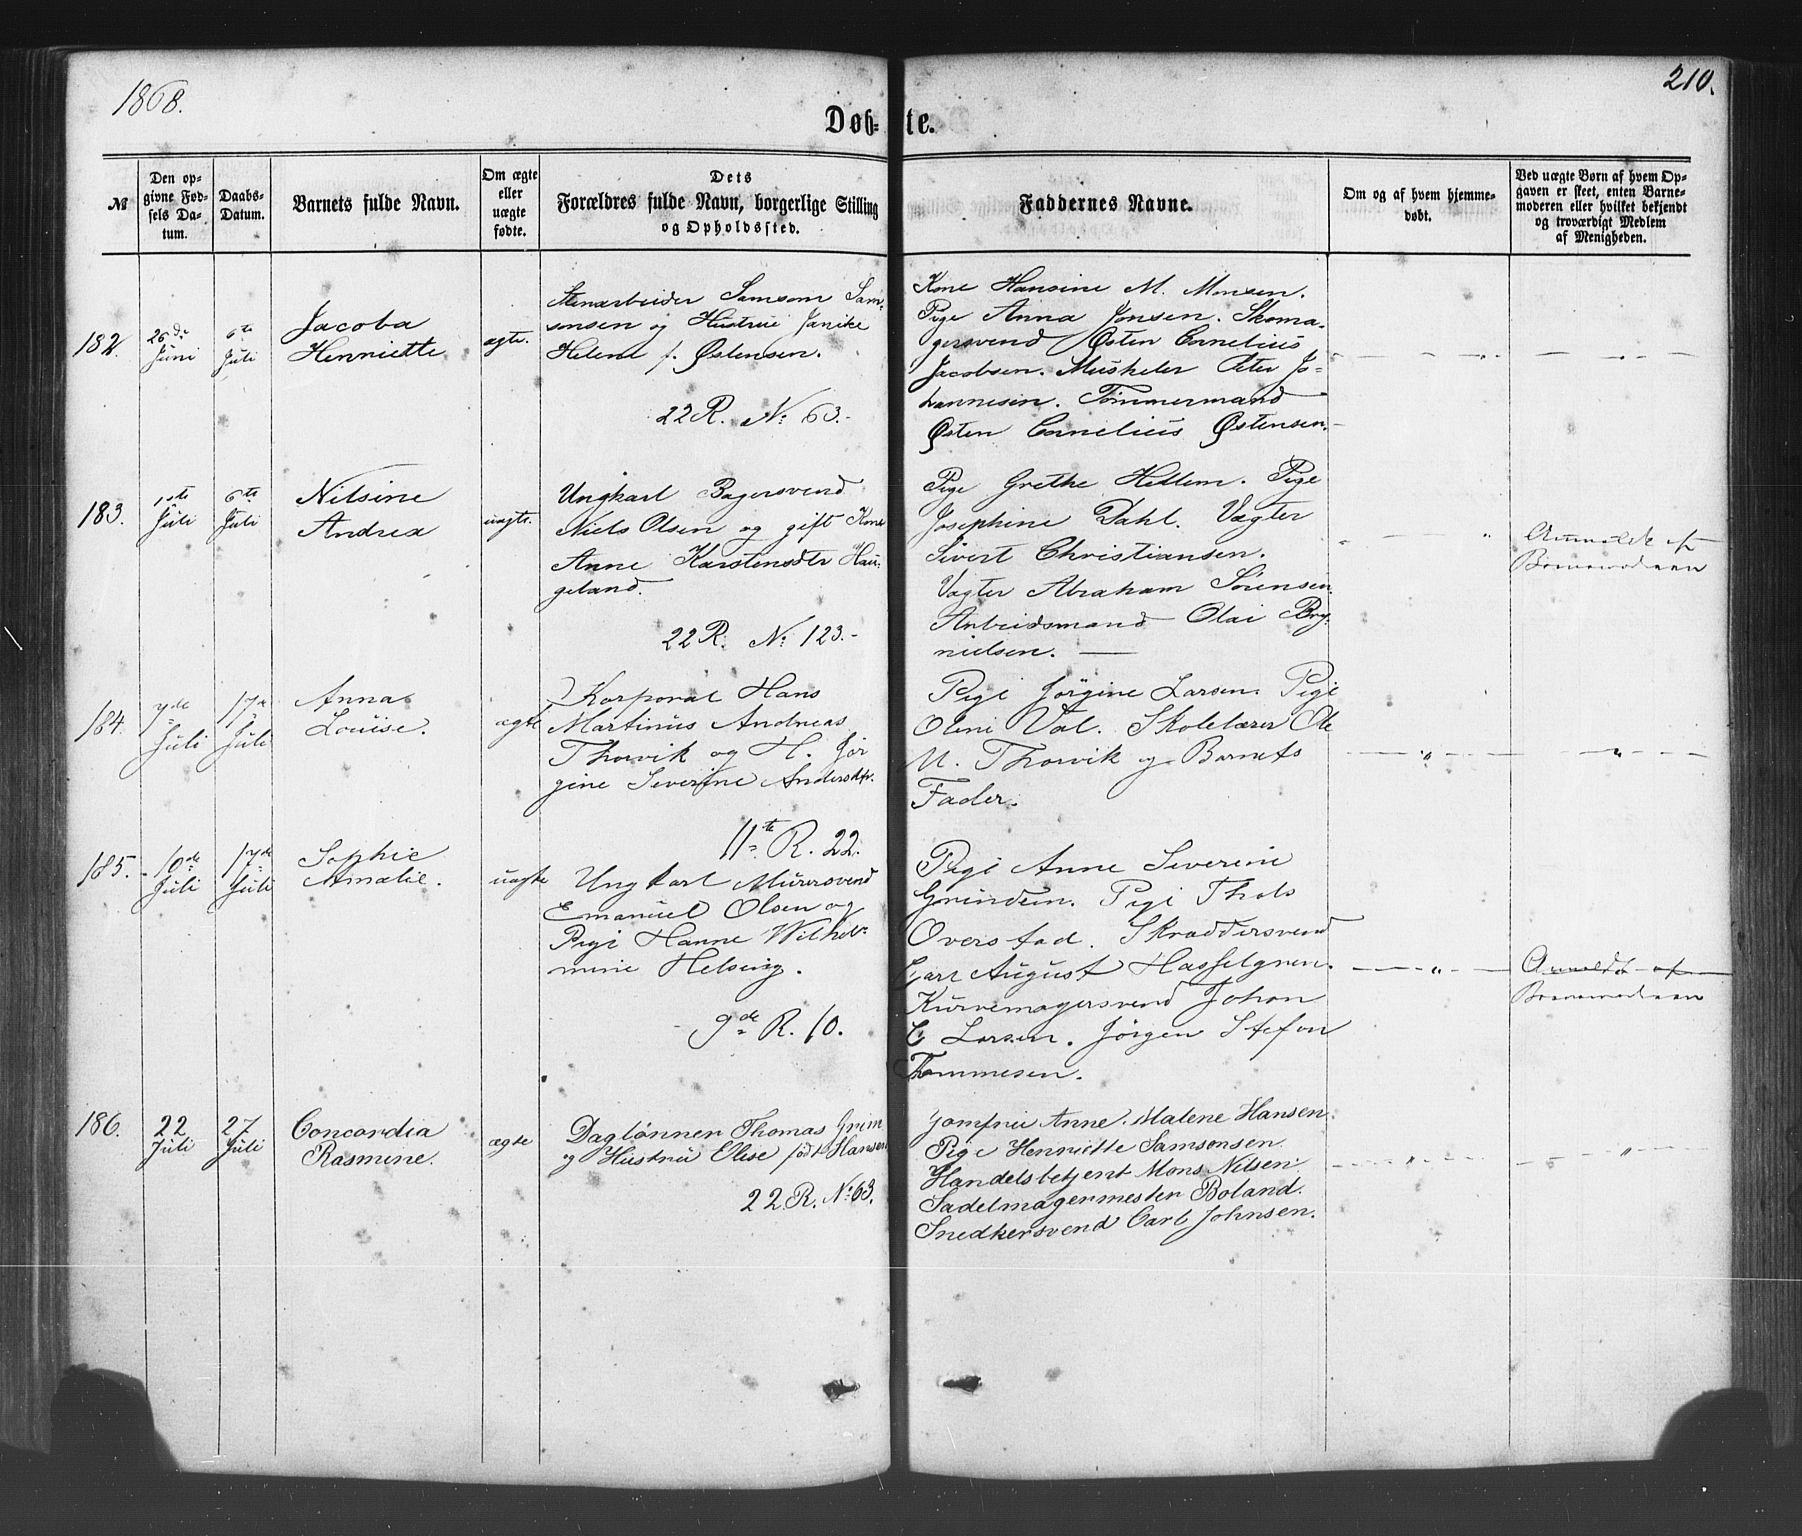 1868.
210.
Døb- te.
№
Den op-
givne Fød-
sels Da-
tum.
Daabs-
Datum.
Barnets fulde Navn.
Om ægte
eller
uægte
fødte.
Dets
Forældres fulde Navn, borgerlige Stilling
og Opholdssted.
Faddernes Navne.
Om og af hvem hjemme-
døbt.
Ved uægte Børn af hvem Op-
gaven er skeet, enten Barne-
moderen eller hvilket bekjendt
og troværdigt Medlem
af Menigheden.
182.
26de
Juni
6te
Juli
Jacoba
Henriette
ægte.
Stenarbeider Samson Sam-
sonsen og Hustrue Janike
Helene f. Østensen.
22 R. No 63.-
Kone Hansine M. Monsen.
Pige Anna Jonsen. Skoma-
gersvend Østen Cornelius
Jacobsen. Musketer Peter Jo-
hannesen. Tømmermand
Østen Cornelius Østensen.
183.
1ste
Juli
6te
Juli
Nilsine
Andrea
uægte.
Ungkarl Bagersvend
Niels Olsen og gift Kone
Anne Karstensdtr Hau-
geland.
22 R. No 123.-
Pige Grethe Hetlem. Pige
Josephine Dahl. Vægter
Sivert Christiansen.
Vægter Abraham Sørensen.
Arbeidsmand Olai Bry-
nielsen.
Anmeldt af
Barnemoderen
184.
7de
Juli
17de
Juli
Anna
Louise.
ægte
Korporal Hans
Martinus Andreas
Thorvik og H. Jør
gine Severine Andersdtr.
11te R. 22.
Pige Jørgine Larsen. Pige
Oline Val. Skolelærer Ole
M. Thorvik og Barnets
Fader.
185.
10de
Juli
17de
Juli
Sophie
Amalie.
uægte
Ungkarl Murersvend
Emanuel Olsen og
Pige Hanne Wilhel-
mine Helseng.
9de R. 10.
Pige Anne Severine
Pige
Overstad. Skræddersvend
Carl August Hasselgren.
Kurvemagersvend Johan
C Larsen. Jørgen Stefan
Thommesen.
Anmeldt af
Barnemoderen
186.
22
Juli
27
Juli
Concordia
Rasmine.
ægte
Daglønner Thomas Grim
og Hustrue Elise født Hansen
22 R. No 63.
Jomfrue Anne Malene Hansen
Pige Henriette Samsonsen
Handelsbetjent Mons Nilsen.
Sadelmagermester Boland.
Snedkersvend Carl Johnsen.